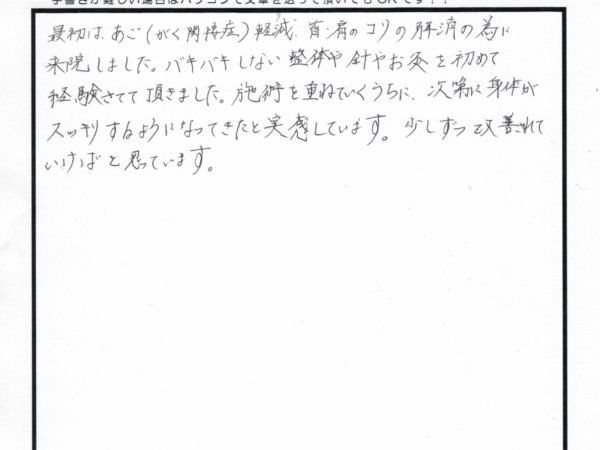 手書きが難しい場合はパソコンで文章を送って頂いてもOKです！！
最初は、あご(がく関接症)軽減、首・肩のコリの解消の為に
来院しました。バキバキしない整体や針やお灸を初めて
経験させて頂きました。施術を重ねていくうちに、次第に身体が
スッキリするようになってきたと実感しています。少しずつ改善されて
いけばと思っています。